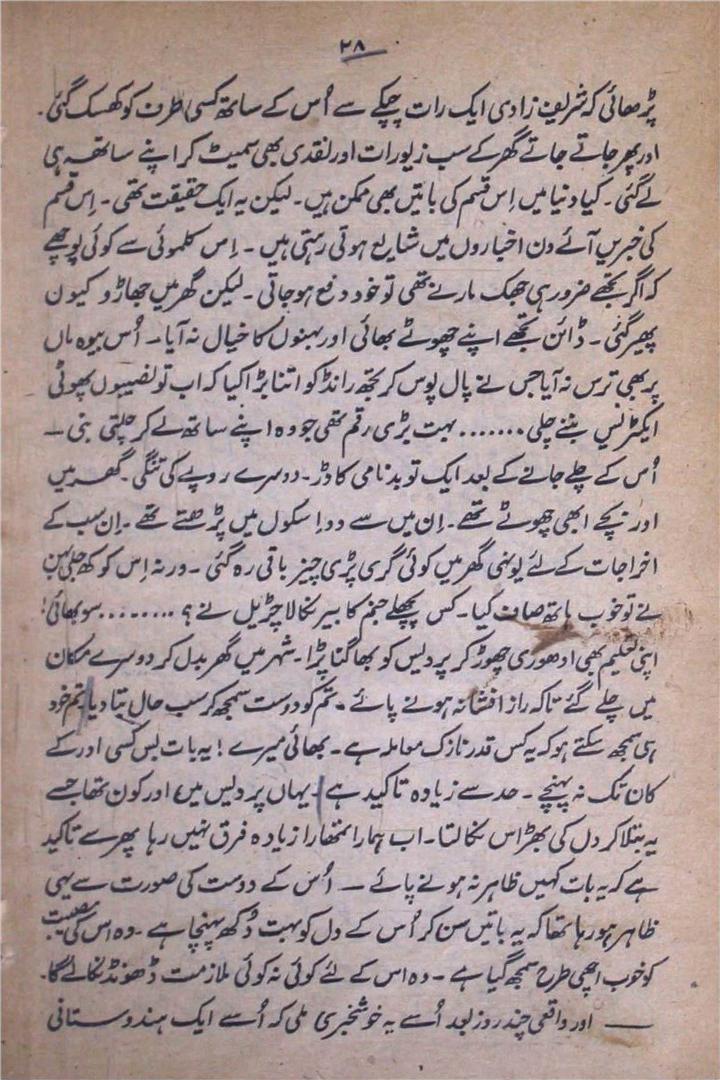 ۲۸
پڑھائی کہ شریف زادی ایک رات چپکے سے اُس کے ساتھ کسی طرف کو کھسک گئی۔
اور پھر جاتے جاتے گھر کے سب زیورات اور نقدی بھی سمیٹ کر اپنے ساتھ ہی
لے گئی۔ کیا دنیا میں اِس قسم کی باتیں بھی ممکن ہیں۔ لیکن یہ ایک حقیقت تھی۔ اِس قسم
کی خبریں آئے دن اخباروں میں شایع ہوتی رہتی ہیں۔ اِس کلموئی سے کوئی پوچھے
کہ اگر تجھے ضرور ہی جھک مارنے تھی تو خود دفع ہو جاتی۔ لیکن گھر میں جھاڑو کیون
پھیر گئی۔ ڈائن تجھے اپنے چھوٹے بھائی اور بہنوں کا خیال نہ آیا۔ اُس بیوہ ماں
پر بھی ترس نہ آیا جس نے پال پوس کر تجھ رانڈ کو اتنا بڑا کیا کہ اب تو نصیبوں پھوٹی
ایکٹرنیس بننے چلی ....... بہت بڑی رقم تھی جو وہ اپنے ساتھ لے کر چلتی بنی —
اُس کے چلے جانے کے بعد ایک تو بدنامی کا ڈر۔ دوسرے روپے کی تنگی۔ گھر میں
اور بچے ابھی چھوٹے تھے۔ اِن میں سے دو اِسکول میں پڑھتے تھے۔ اِن سب کے
اخراجات کے لئے یونہی گھر میں کوئی گری پڑی چیز باقی رہ گئی۔ ورنہ اِس کوکھ جلی بہن
نے تو خوب ہاتھ صاف کیا۔ کس پچھلے جنم کا بیر نکالا چڑیل نے؟ ........ سو بھائی!
اپنی تعلیم بھی ادھوری چھوڑ کر پردیس کو بھاگنا پڑا۔ شہر میں گھر بدل کر دوسرے مکان
میں چلے گئے تاکہ راز افشا نہ ہونے پائے۔ تم کو دوست سمجھ کر سب حال بتا دیا تم خود
ہی سمجھ سکتے ہو کہ یہ کس قدر نازک معاملہ ہے۔ بھائی میرے! یہ بات بس کسی اور کے
کان تک نہ پہنچے۔ حد سے زیادہ تاکید ہے۔ یہاں پردیس میں اور کون تھا جسے
یہ بتلا کر دل کی بھڑاس نکالتا۔ اب ہمارا تمھارا زیادہ فرق نہیں رہا پھر سے تاکید
ہے کہ یہ بات کہیں ظاہر نہ ہونے پائے — اُس کے دوست کی صورت سے یہی
ظاہر ہو رہا تھا کہ یہ باتیں سن کر اُس کے دل کو بہت دُکھ پہنچا ہے۔ وہ اس کی مصیبت
کو خوب اچھی طرح سمجھ گیا ہے۔ وہ اس کے لئے کوئی نہ کوئی ملازمت ڈھونڈ نکالے گا۔
— اور واقعی چند روز بعد اُسے یہ خوشخبری ملی کہ اُسے ایک ہندوستانی